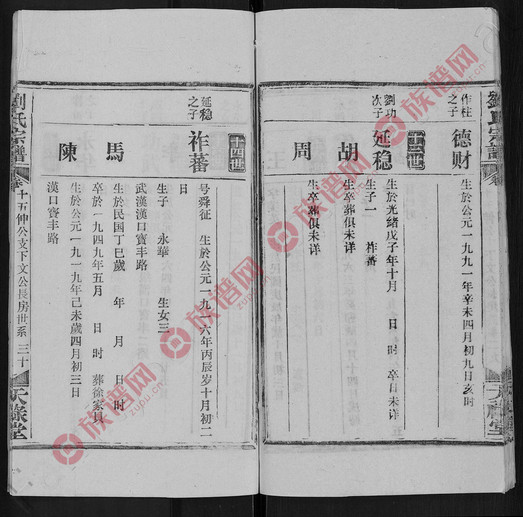 劉氏宗譜
天祿堂
作柱
之子
德財
生於公元一九九一年辛未四月初九日亥時
十四世
劉功
次子
延稳
生於光緒戊子年十月 日 時 卒日未详
生子一 祚蕃
胡
生卒葬俱未详
周
生卒葬俱未详
十四世
延稳
之子
祚蕃
号舜征 生於公元一九一六年丙辰岁十月初二
日
生子 永華 生女三
武漢漢口寶丰路
馬
生於民国丁巳歲 年 月 日 時
卒於一九四九年五月 日 時 葬徐家
陳
生於公元一九一九年己未歲四月初三日
漢口寶丰路
劉氏宗譜
卷十五仲公支下文公長房世系
三十
天祿堂
族谱网
zupu.cn
族谱网
zupu.cn
族谱网
zupu.cn